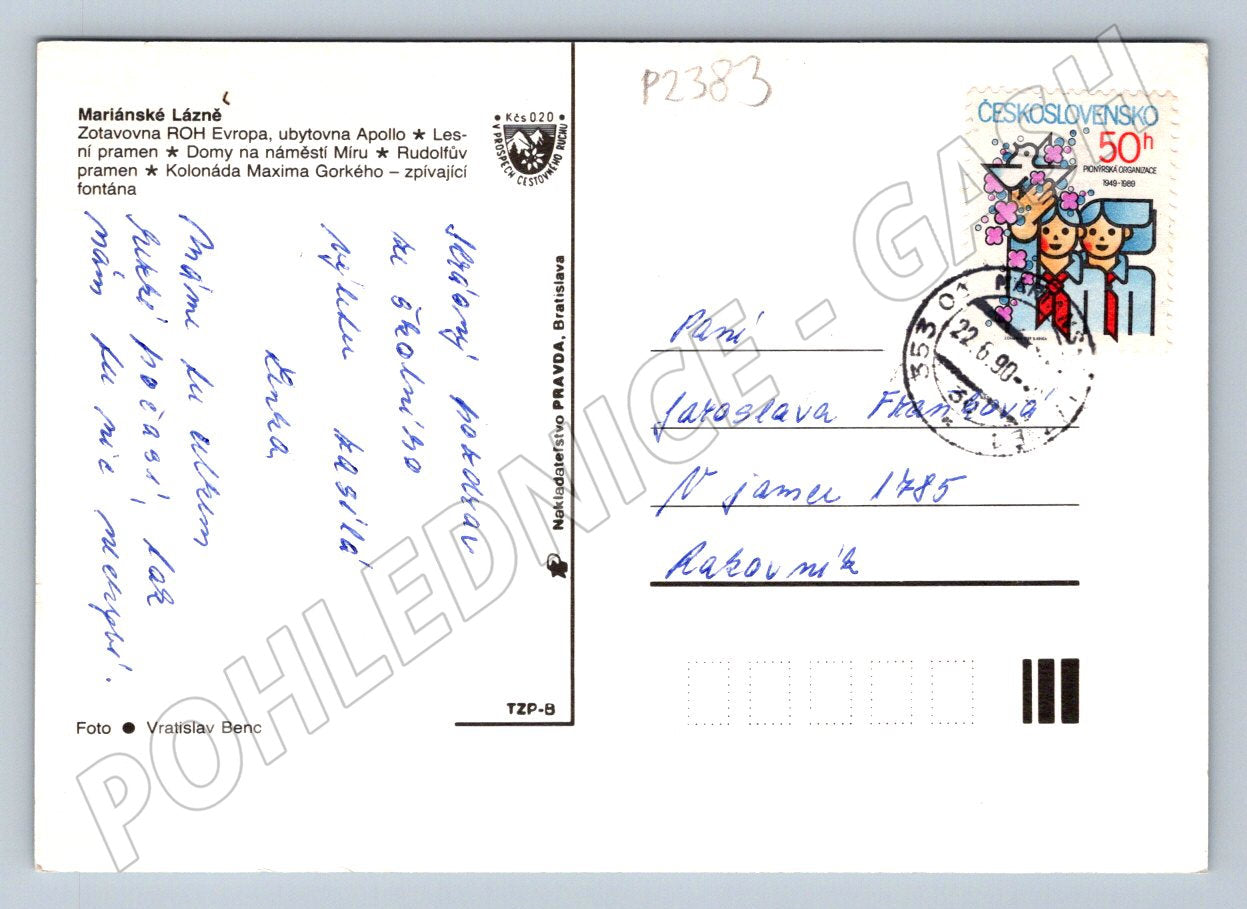 P2383
Mariánské Lázně
Zotavovna ROH Evropa, ubytovna Apollo ★ Les-
ní pramen ★ Domy na náměstí Míru ★ Rudolfův
pramen ★ Kolonáda Maxima Gorkého – zpívající
fontána
Kčs 020
V PROSPĚCH CESTOVNÉHO RUCHU
Srdečný pozdrav
ze školního
výletu zasílá
Lenka
Máme tu
hezké počasí, tak
nám tu nic nechybí.
Nakladateľstvo PRAVDA, Bratislava
TZP-B
Foto ● Vratislav Benc
ČESKOSLOVENSKO
50h
PIONÝRSKÁ ORGANIZACE
1949-1989
353 01
22.6.90
Paní
Jaroslava
V jamce 1785
Rakovník
POHLEDNICE - GASH